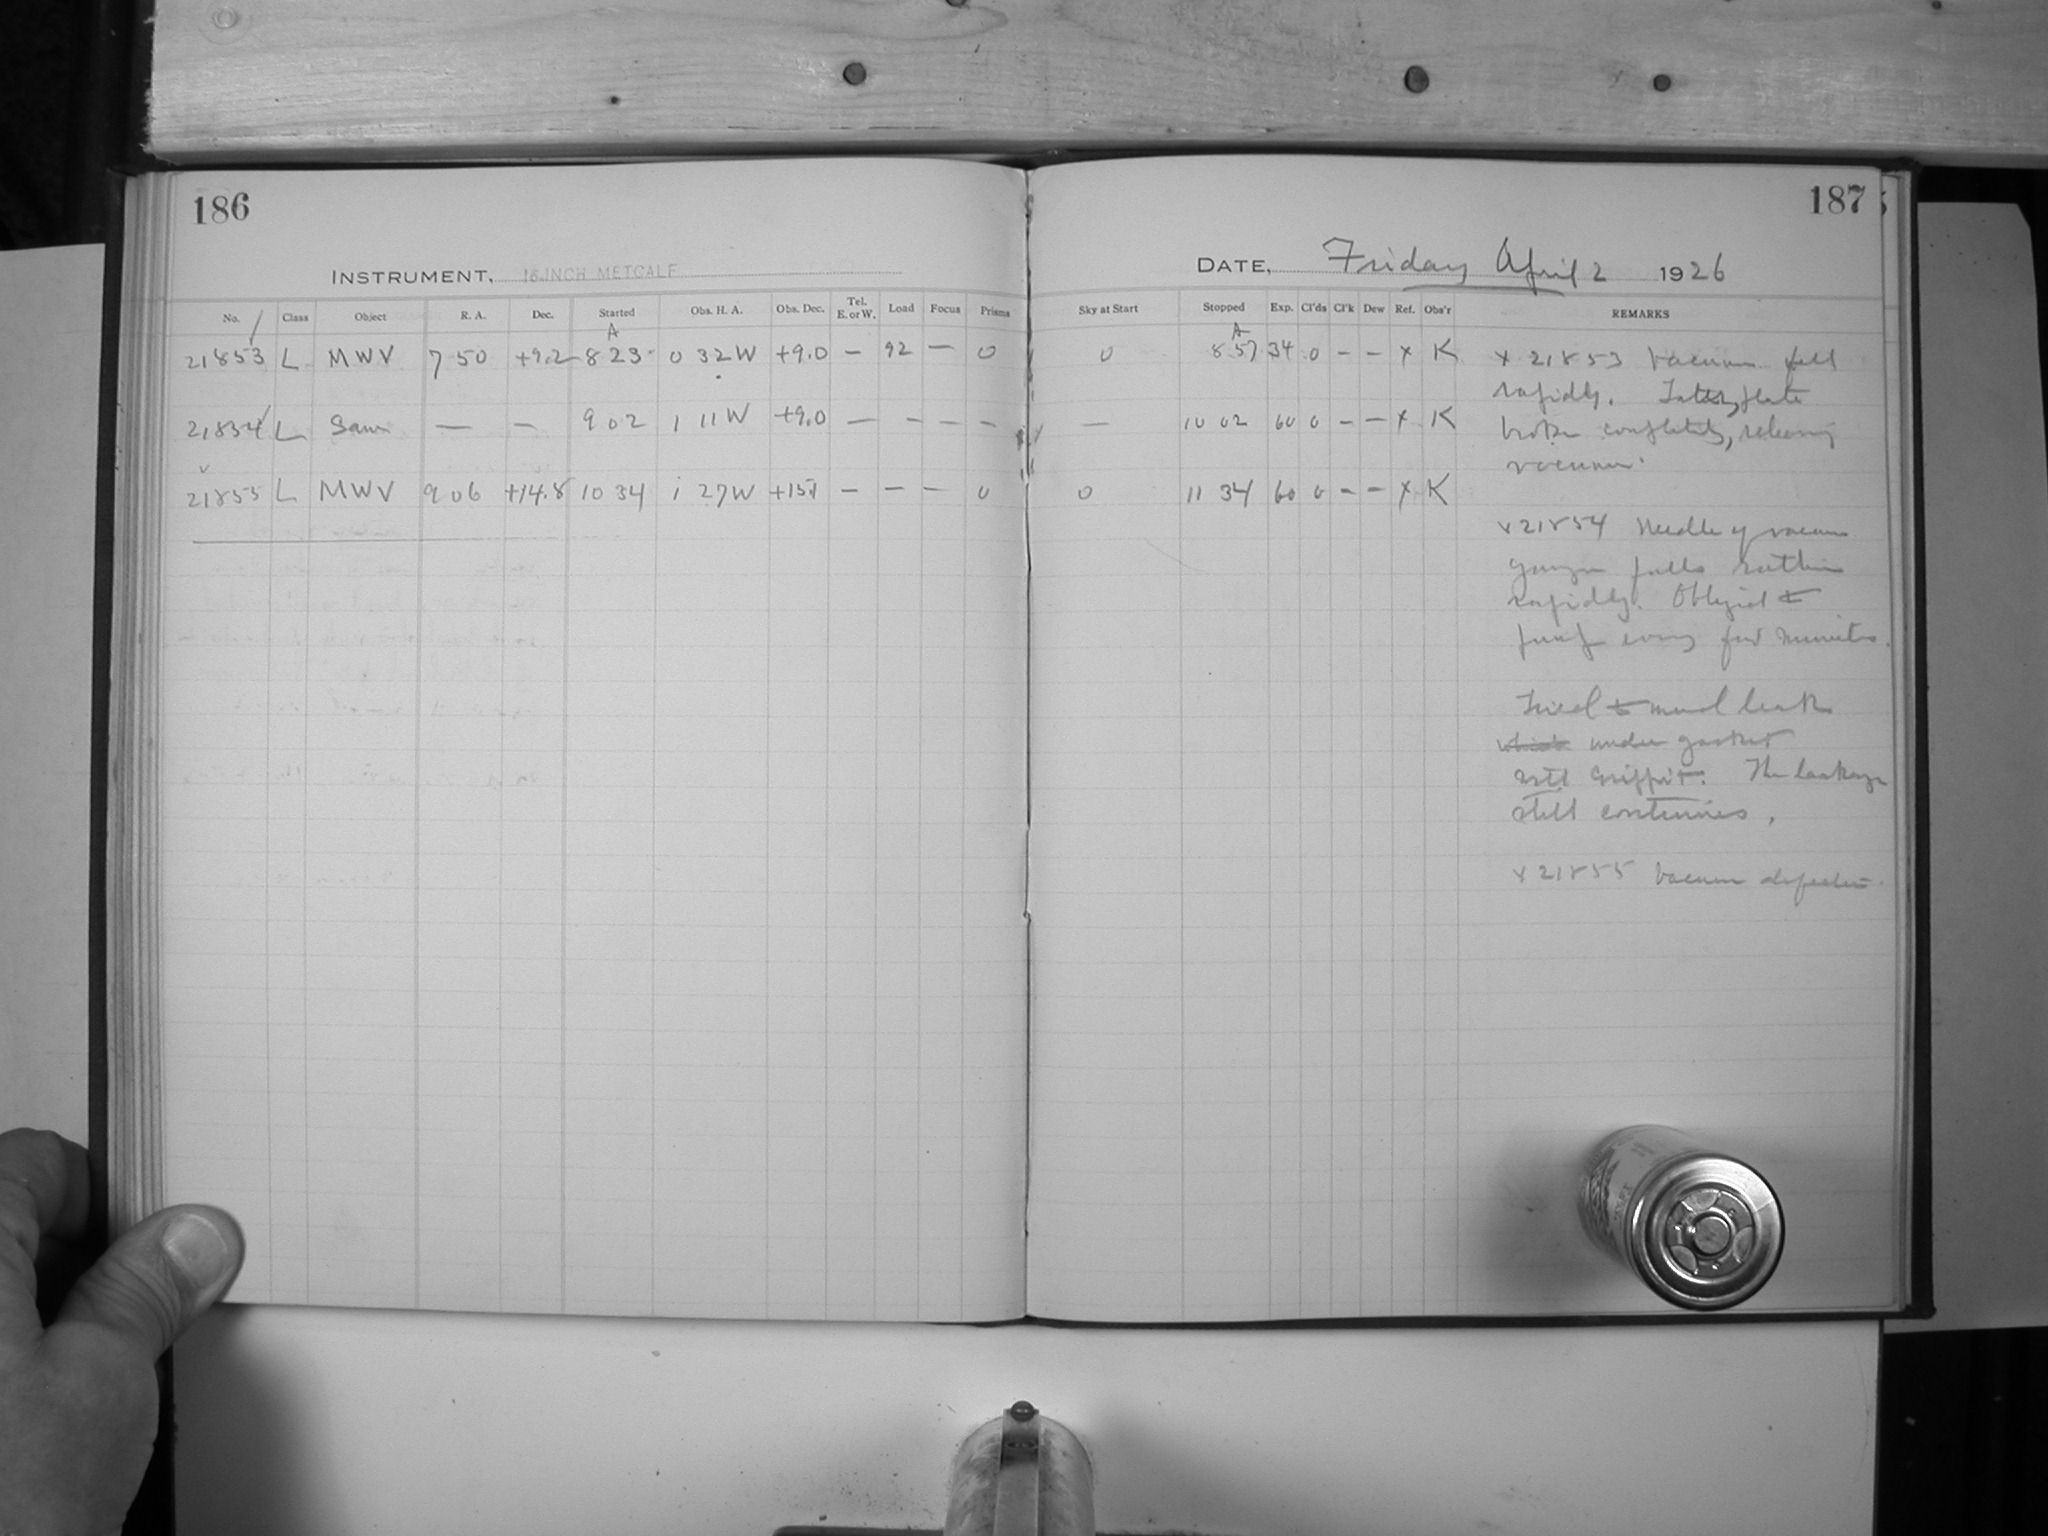 186
187
INSTRUMENT, 16-INCH METCALF
DATE, Friday April 2 1926
No. Class Object R. A. Dec. Started Obs. H. A. Obs. Dec. Tel. E. or W. Load Focus Prisms Sky at Start Stopped Exp. Cl'ds Cl'k Dew Ref. Obs'r REMARKS
A A
21853 L MWV 7 50 +9.2 8 23 0 32 W +9.0 — 92 — 0 0 8 57 34 0 — — x K
21854 L Same — — 9 02 1 11 W +9.0 — — — — — 10 02 60 0 — — x K
21855 L MWV 9 06 +14.8 10 34 1 27 W — — — 0 0 11 34 60 0 — — x K
x 21853 Vacuum fell
rapidly. plate
broke completely, releasing
vacuum.
x 21854 Needle of vacuum
gauge falls rather
rapidly. Obliged to
pump every few minutes.
Tried to mend leak
under gasket
with . The leakage
still continues.
x 21855 Vacuum defective